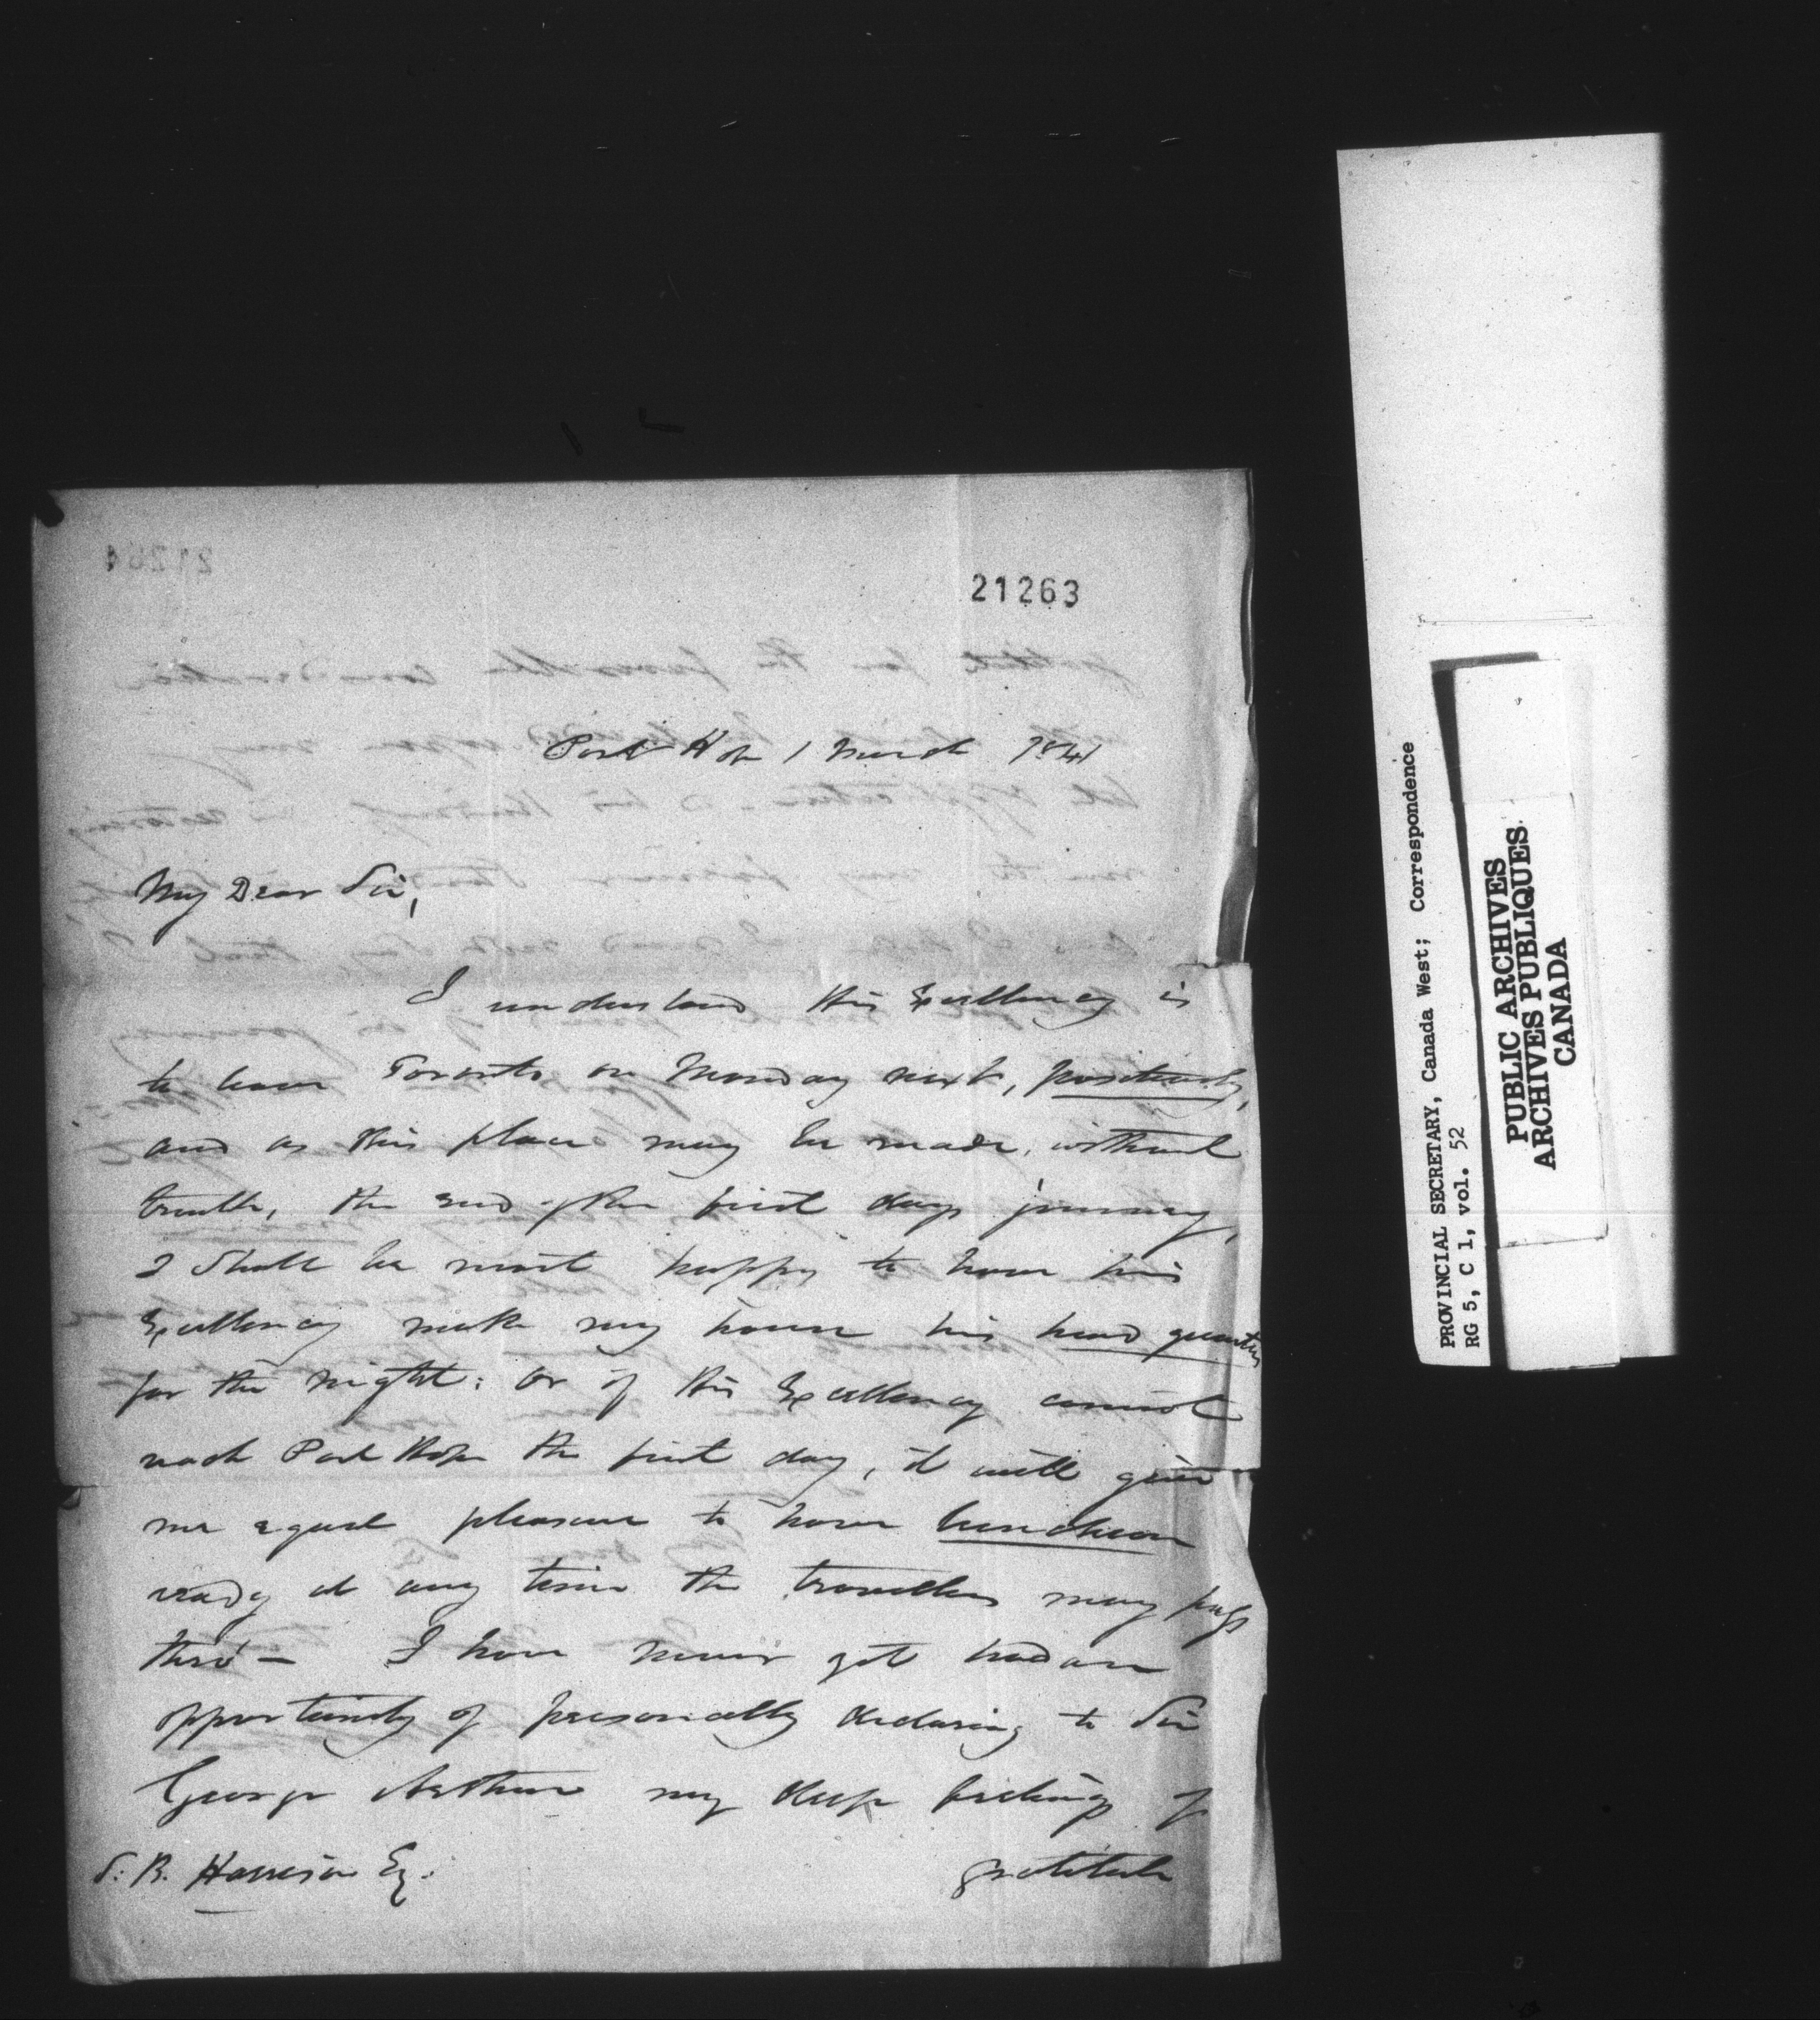 21263
Port Hope 1 March 1841
My Dear Sir,
I understand His Excellency is
to leave Toronto on Monday next, positively,
and as this place may be made, without
trouble, the end of the first days journey,
I shall be most happy to have his
Excellency make my house his head quarters
for the night: Or if His Excellency cannot
reach Port Hope the first day, it will give
me equal pleasure to have luncheon
ready at any time the travellers may pass
thro' — I have never yet had an
opportunity of personally declaring to Sir
George Arthur my deep feelings of
gratitude
S: B. Harrison Esq:
PROVINCIAL SECRETARY, Canada West; Correspondence
RG 5, C 1, vol. 52
PUBLIC ARCHIVES
ARCHIVES PUBLIQUES
CANADA